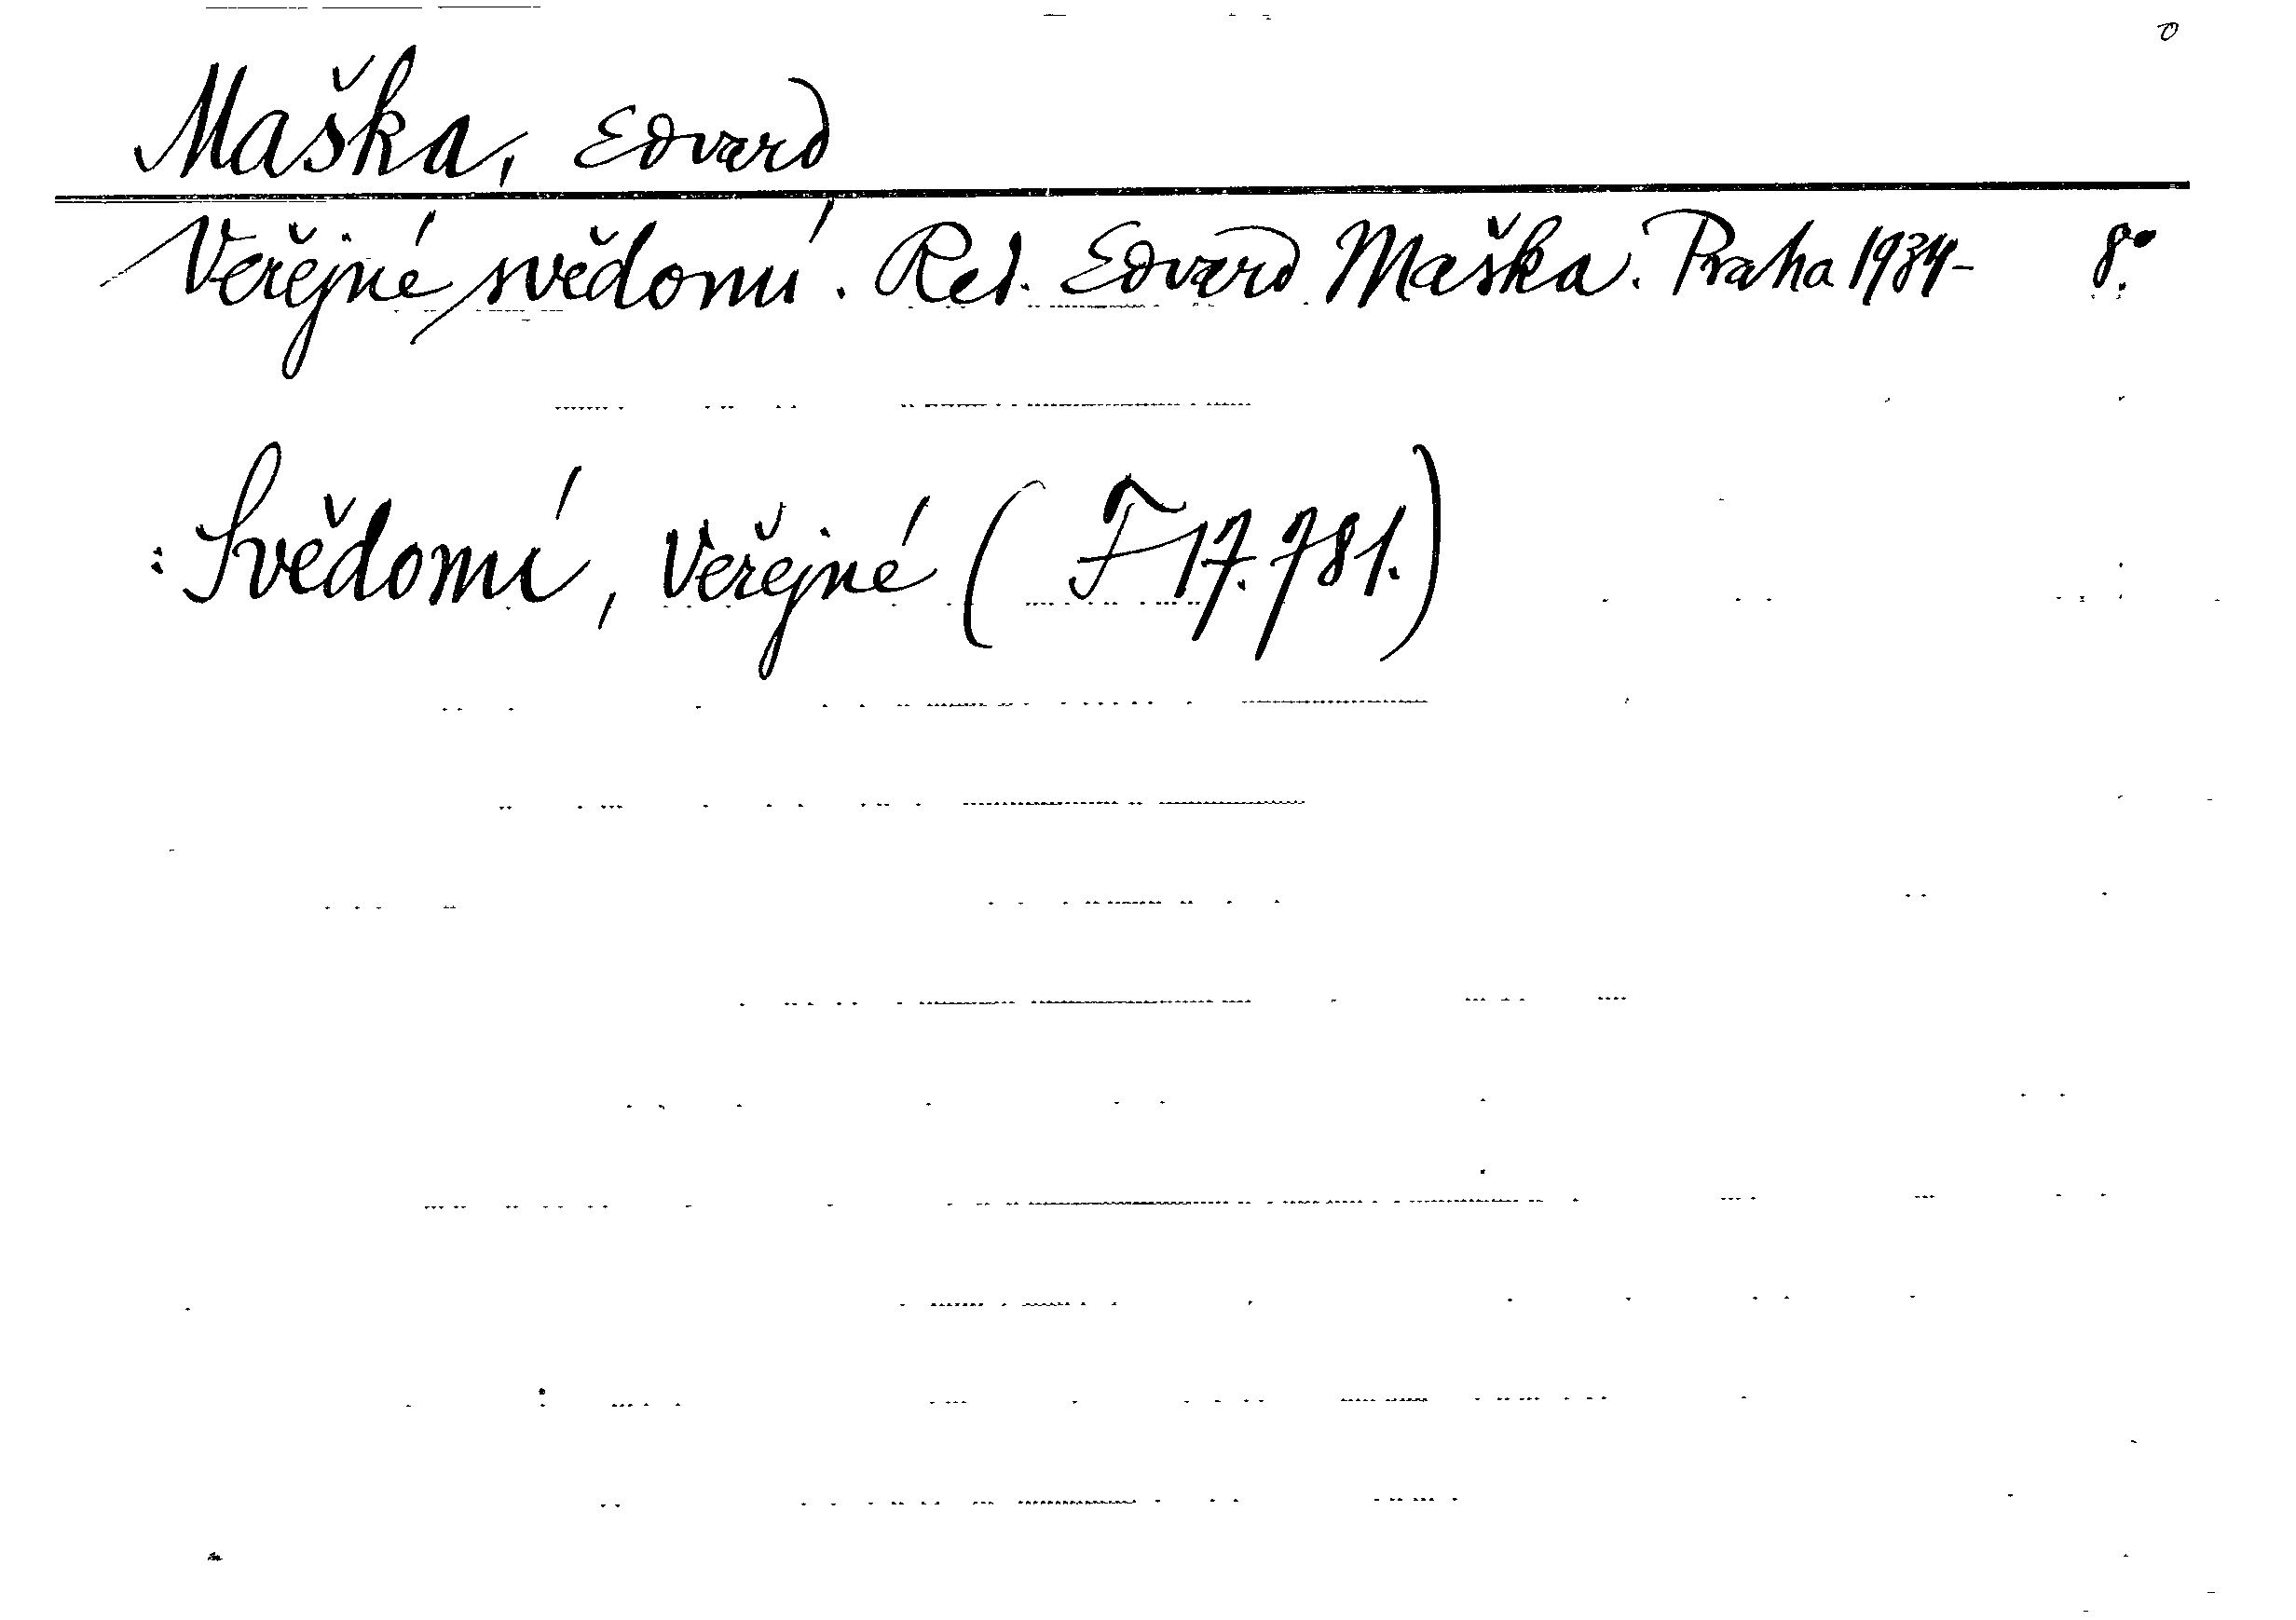 Maška, Edvard
Veřejné svědomí. Red. Edvard Maška. Praha 1934- 8°.
: Svědomí, Veřejné ( F 17.781.)